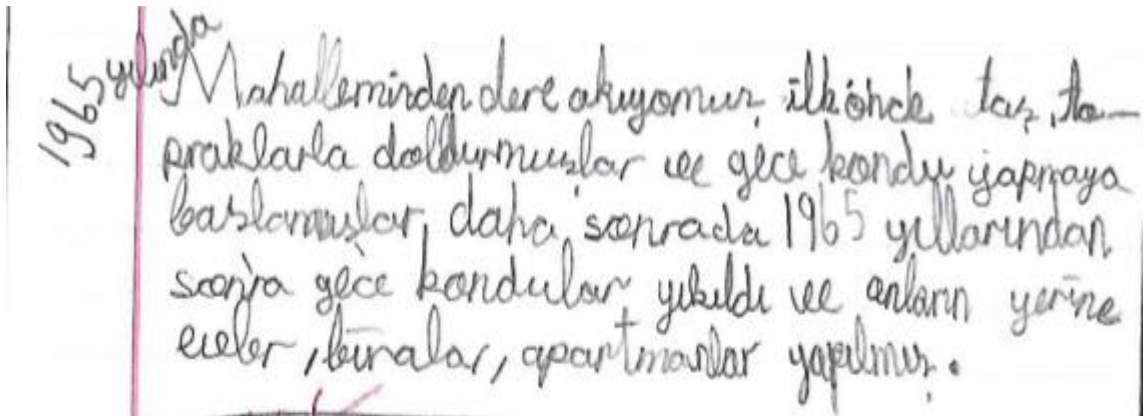 1965 yılında
Mahallemizden dere akıyomuş ilk önce taş, to-
praklarla doldurmuşlar ve gece kondu yapmaya
başlamışlar, daha sonrada 1965 yıllarından
sonra gece kondular yıkıldı ve onların yerine
evler, binalar, apartmanlar yapılmış.